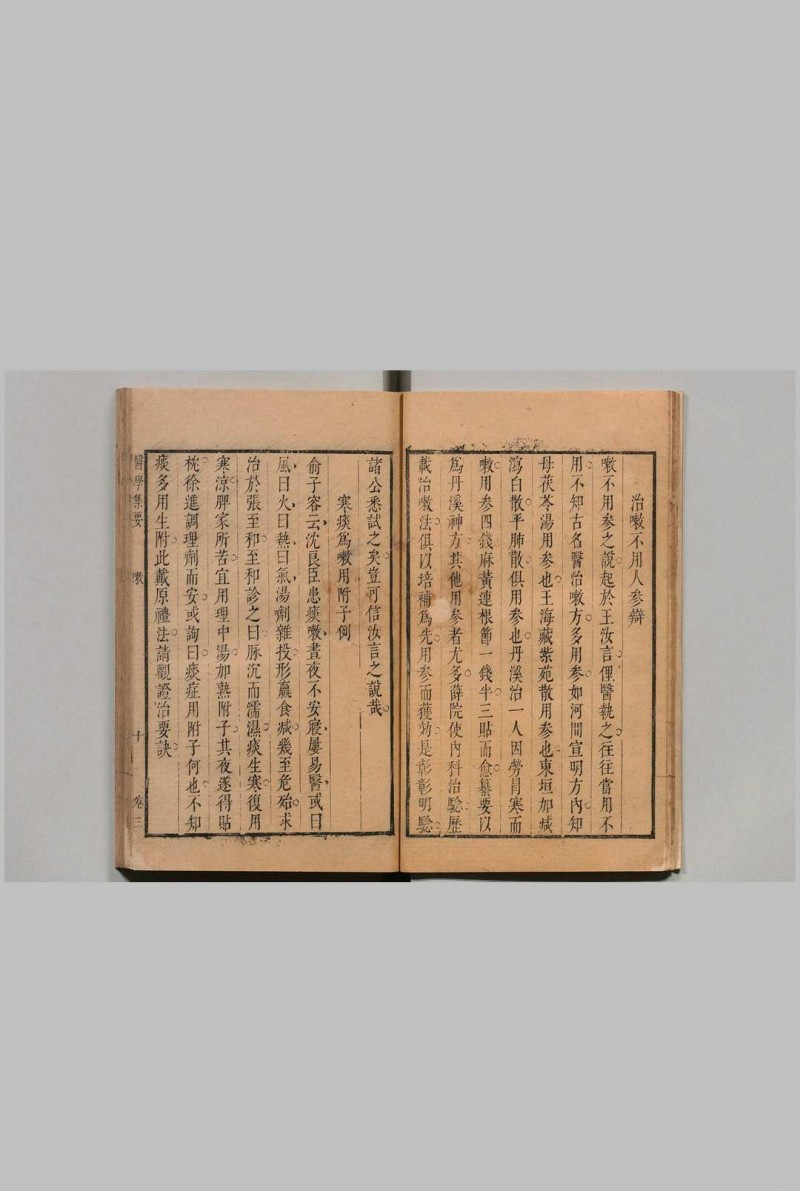 治嗽不用人參辯
嗽不用參之說起於王汝言俚醫執之往往當用不
用不知古名醫治嗽方多用參如河間宣明方內知
母茯苓湯用參也王海藏紫苑散用參也東垣加減
瀉白散平肺散俱用參也丹溪治一人因勞冐寒而
嗽用參四錢麻黃連根節一錢半三貼而愈纂要以
爲丹溪神方其他用參者尤多薛院使內科治驗歷
載治嗽法俱以培補爲先用參而獲効是彰彰明驗
諸公悉試之矣豈可信汝言之說哉
寒痰爲嗽用附子例
俞子容云沈良臣患痰嗽晝夜不安寢屢易醫或曰
風曰火曰熱曰氣湯劑雜投形羸食減幾至危殆求
治於張至和至和診之曰脉沉而濡濕痰生寒復用
寒涼脾家所苦宜用理中湯加熟附子其夜遂得貼
枕徐進調理劑而安或詢曰痰症用附子何也不知
痰多用生附此戴原禮法請觀證治要訣
醫學集要 嗽 十 卷三